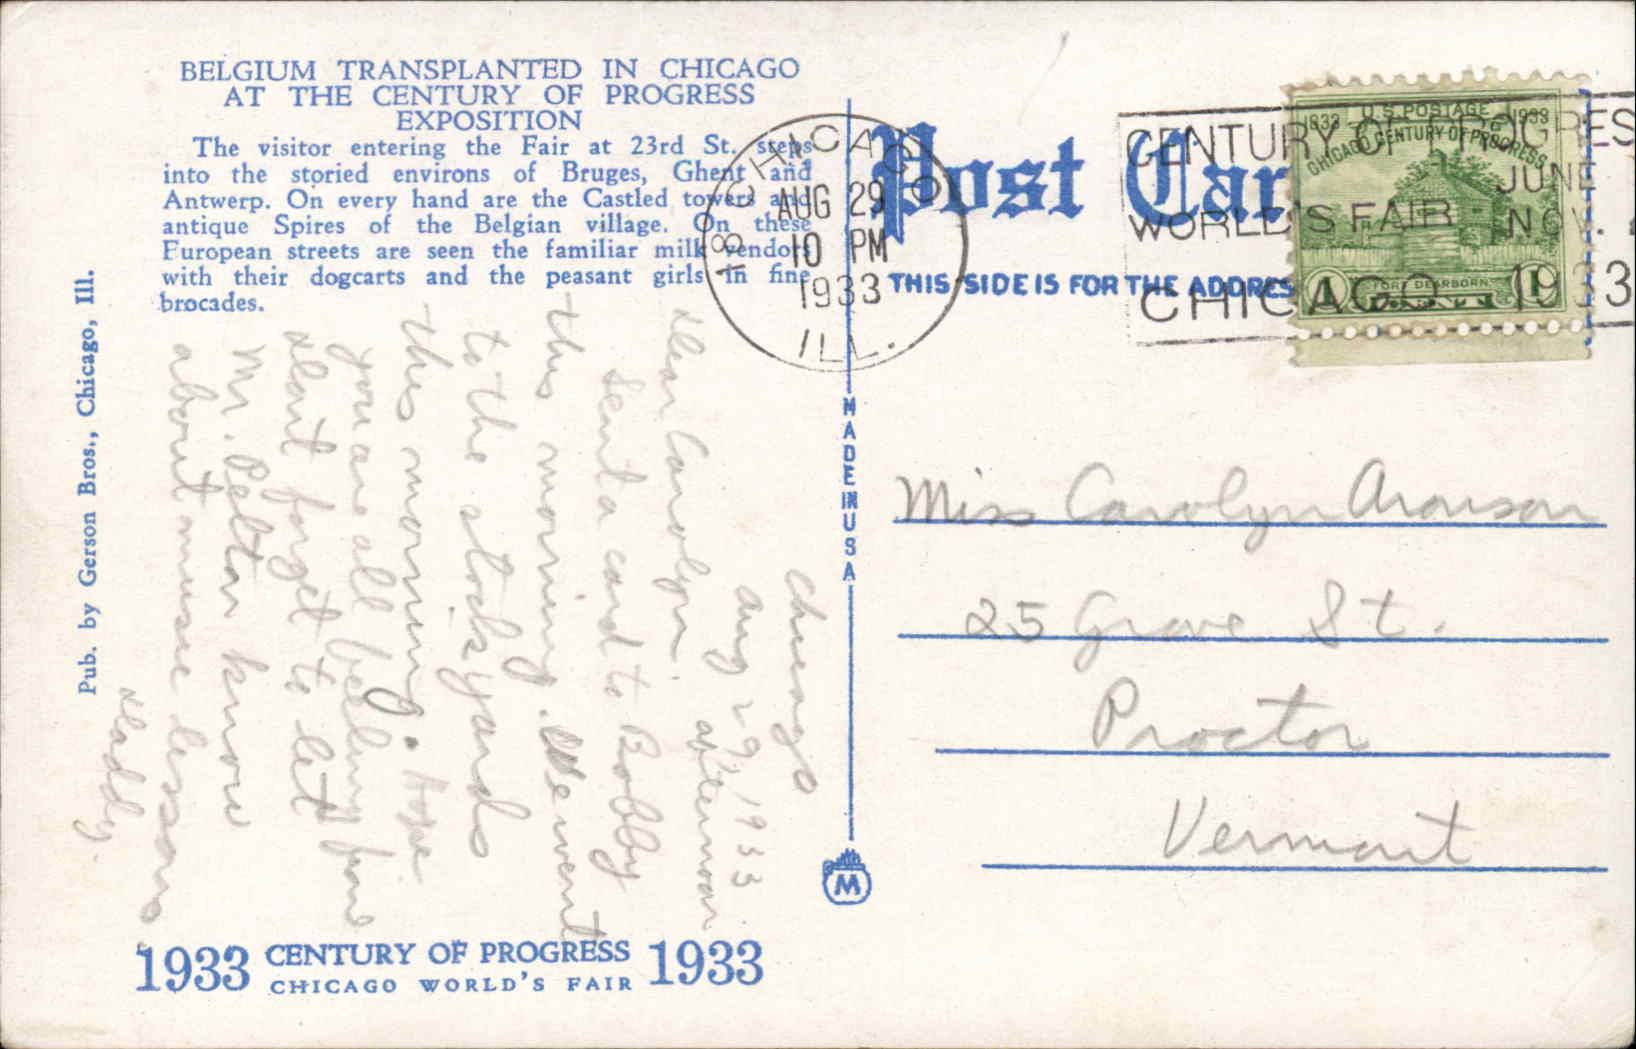 BELGIUM TRANSPLANTED IN CHICAGO
AT THE CENTURY OF PROGRESS
EXPOSITION
The visitor entering the Fair at 23rd St. steps
into the storied environs of Bruges, Ghent and
Antwerp. On every hand are the Castled towers and
antique Spires of the Belgian village. On these
European streets are seen the familiar milk vendors
with their dogcarts and the peasant girls in fine
brocades.
Pub. by Gerson Bros., Chicago, Ill.
Chicago
Aug 29 1933
afternoon
Dear Carolyn
Sent a card to Bobby
this morning. We went
to the stockyards
this morning. Hope
you are all feeling fine
Dont forget to let
Mr. Pelton know
about music lessons
Daddy.
1933 CENTURY OF PROGRESS 1933
CHICAGO WORLD'S FAIR
MADE IN USA
M
CHICAGO
18
AUG 29
10 PM
1933
ILL.
Post Car
THIS SIDE IS FOR THE ADDRES
CENTURY OF PROGRES
WORLD'S FAIR
JUNE
NOV.
CHICAGO 1933
U.S. POSTAGE
1833 1933
CHICAGO CENTURY OF PROGRESS
FORT DEARBORN
1 1
Miss Carolyn Aronson
25 Grove St.
Proctor
Vermont